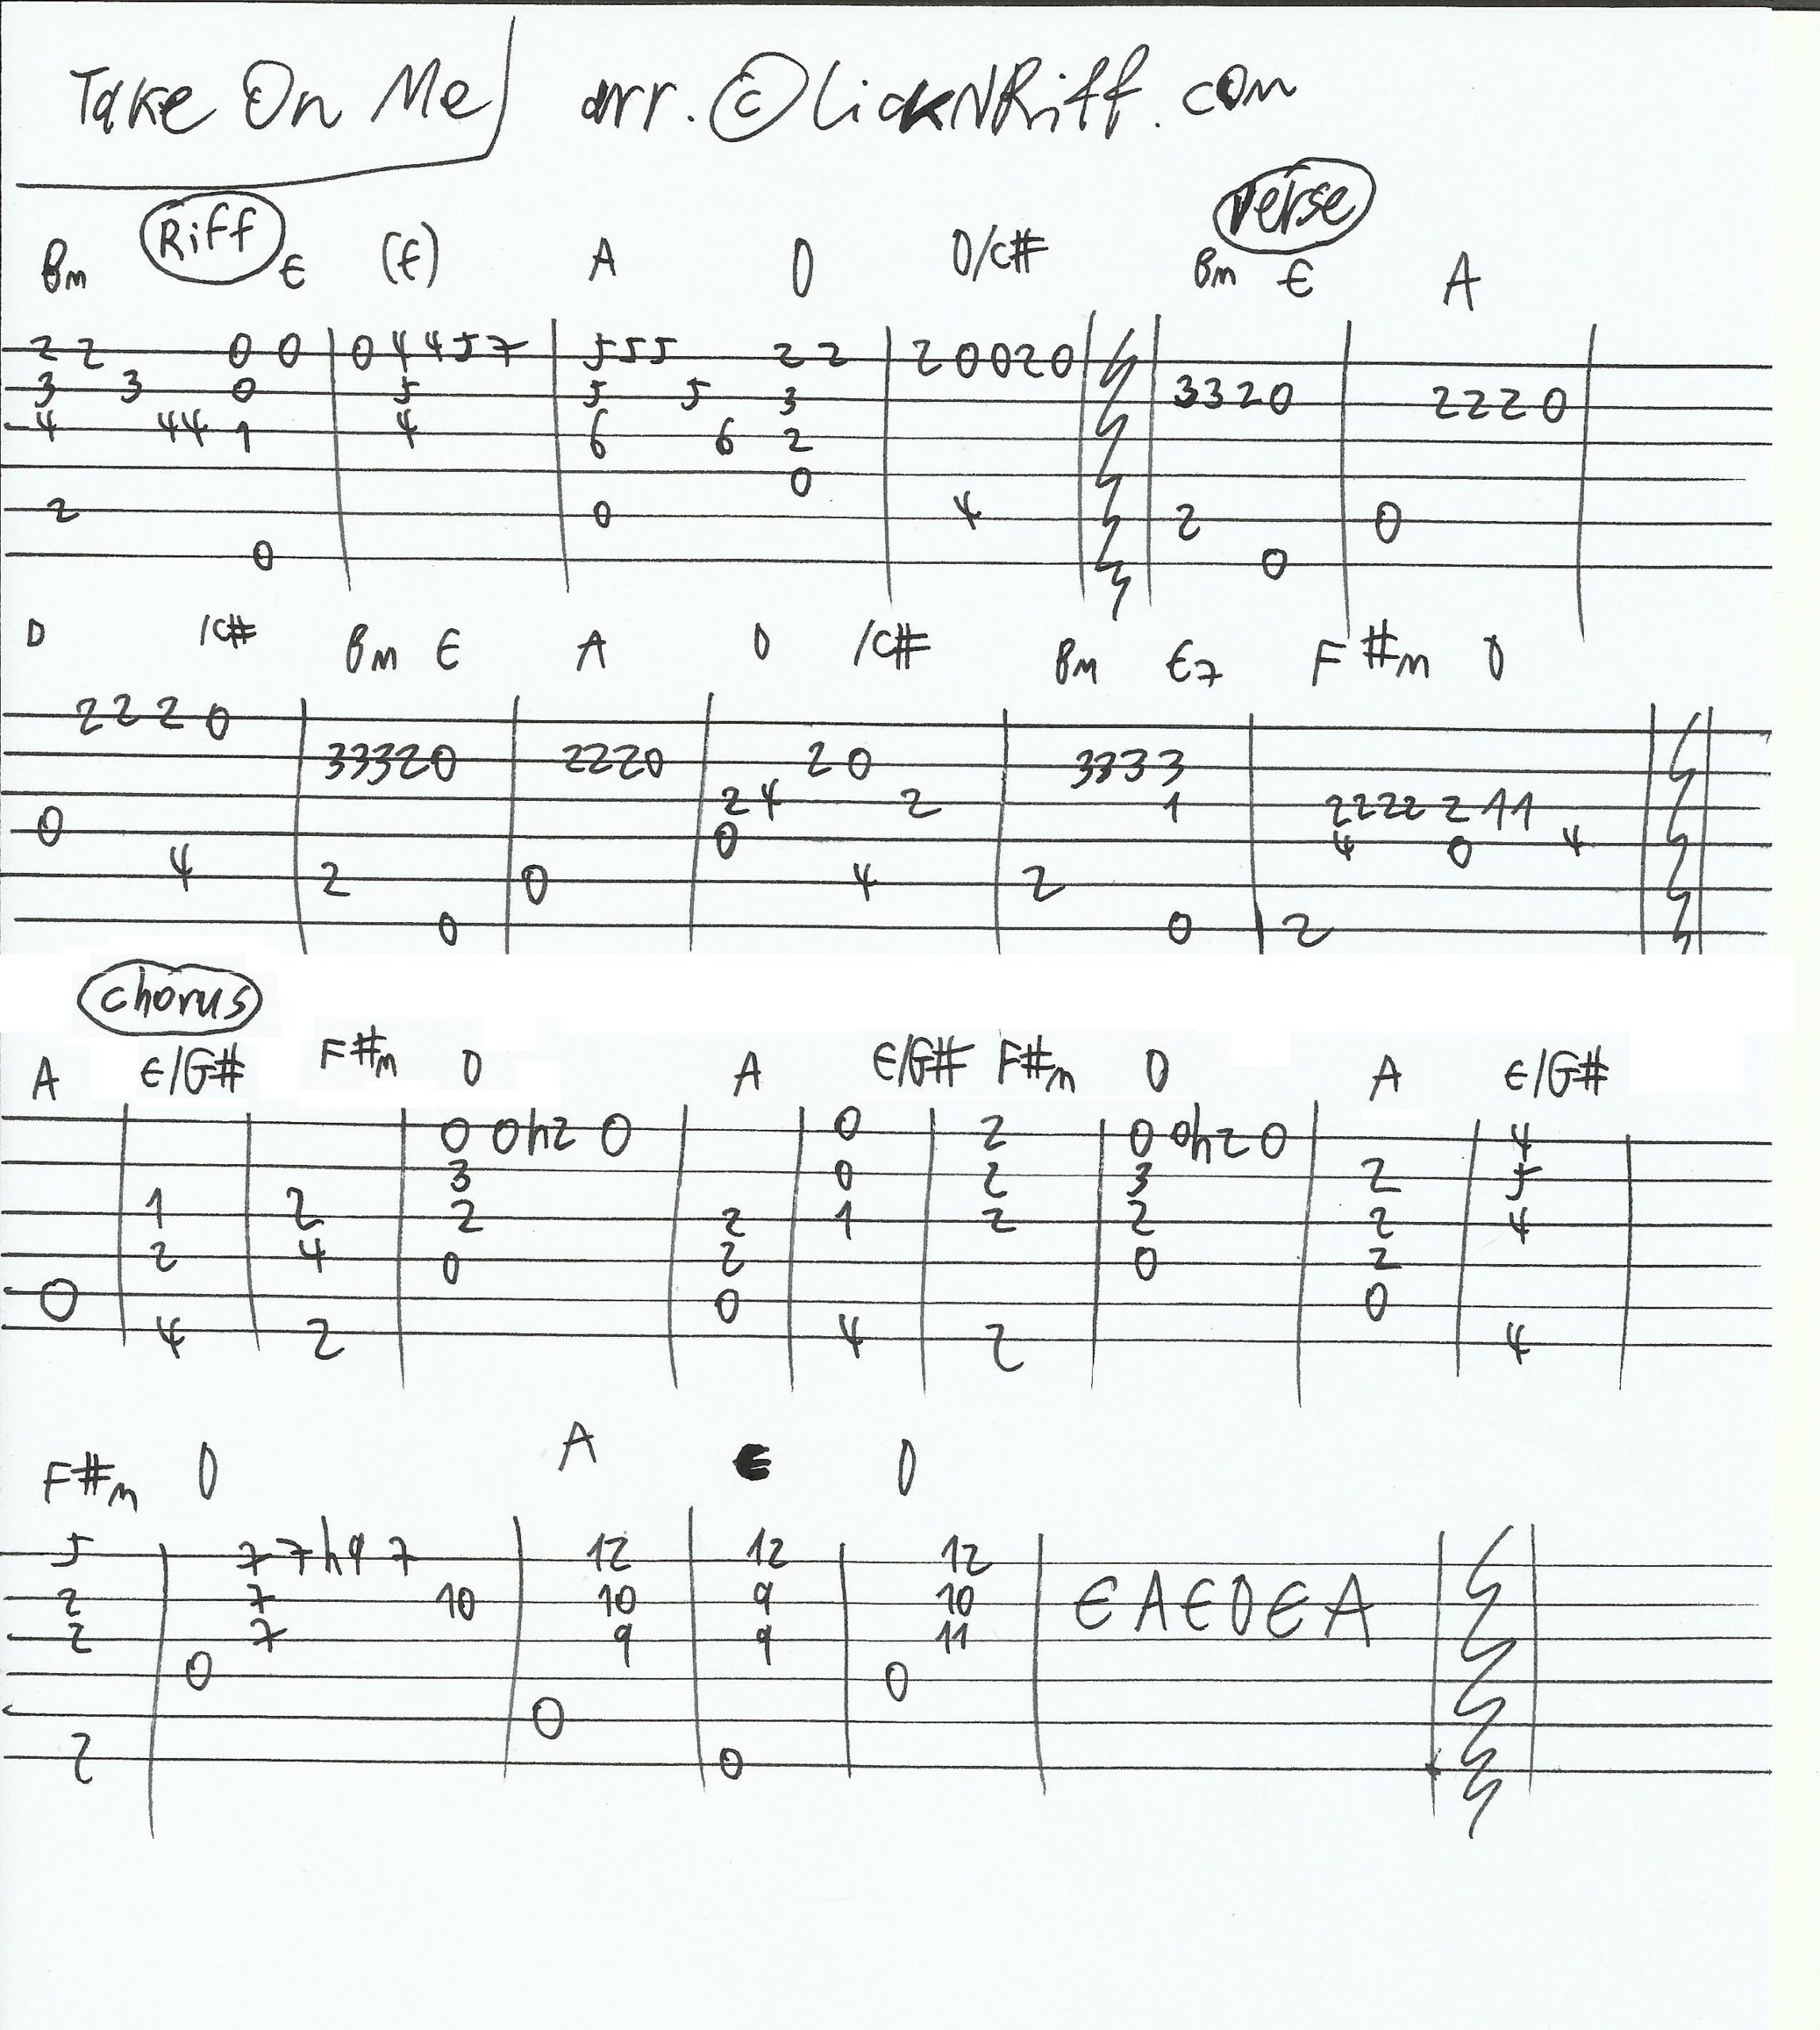 Take On Me arr. © LickNRiff.com
Riff Verse
Bm E (E) A D D/C# Bm E A
2 2 0 0 0 4 4 5 7 5 5 5 2 2 2 0 0 2 0
3 3 0 5 5 5 3 3 3 2 0 2 2 2 0
4 4 4 1 4 6 6 2
0
2 0 4 2 0
0 0
D /C# Bm E A D /C# Bm E7 F#m D
2 2 2 0
3 3 3 2 0 2 2 2 0 2 0 3 3 3 3
2 4 2 1 2 2 2 2 2 1 1
0 0 4 0 4
4 2 0 4 2
0 0 2
Chorus
A E/G# F#m D A E/G# F#m D A E/G#
0 0h2 0 0 2 0 0h2 0 4
3 0 2 3 2 5
1 2 2 2 1 2 2 2 4
2 4 0 2 0 2
0 0 0
4 2 4 2 4
F#m D A E D
5 7 7h9 7 12 12 12
2 7 10 10 9 10 E A E D E A
2 7 9 9 11
0 0
0
2 0